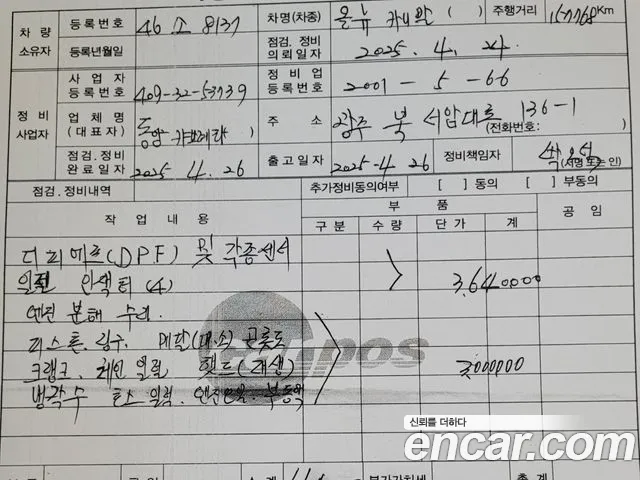 차량 소유자 등록번호 46소8137 차명(차종) 올뉴 카니발 ( ) 주행거리 157768Km
등록년월일 점검.정비 의뢰일자 2025. 4.
정비 사업자 사업자 등록번호 409-32-53739 정비업 등록번호 2001-5-66
업체명 (대표자) 동양카프레라 주소 광주 북 서암대로 136-1 (전화번호: )
점검.정비 완료일자 2025 4. 26 출고일자 2025-4 26 정비책임자 (서명 또는 인)
점검.정비내역 추가정비동의여부 [ ] 동의 [ ] 부동의
작업내용 부품 공임
구분 수량 단가 계
디피에프(DPF) 및 각종센서
일절 인젝터(4) 3,640000
엔진 분해 수리.
피스톤. 링구. 메달(대.소) 곤로드
크랭크. 체인 일절 헷드(재생) 3,000000
냉각수 호스 일절. 엔진오일. 부동액
campos
신뢰를 더하다
encar.com